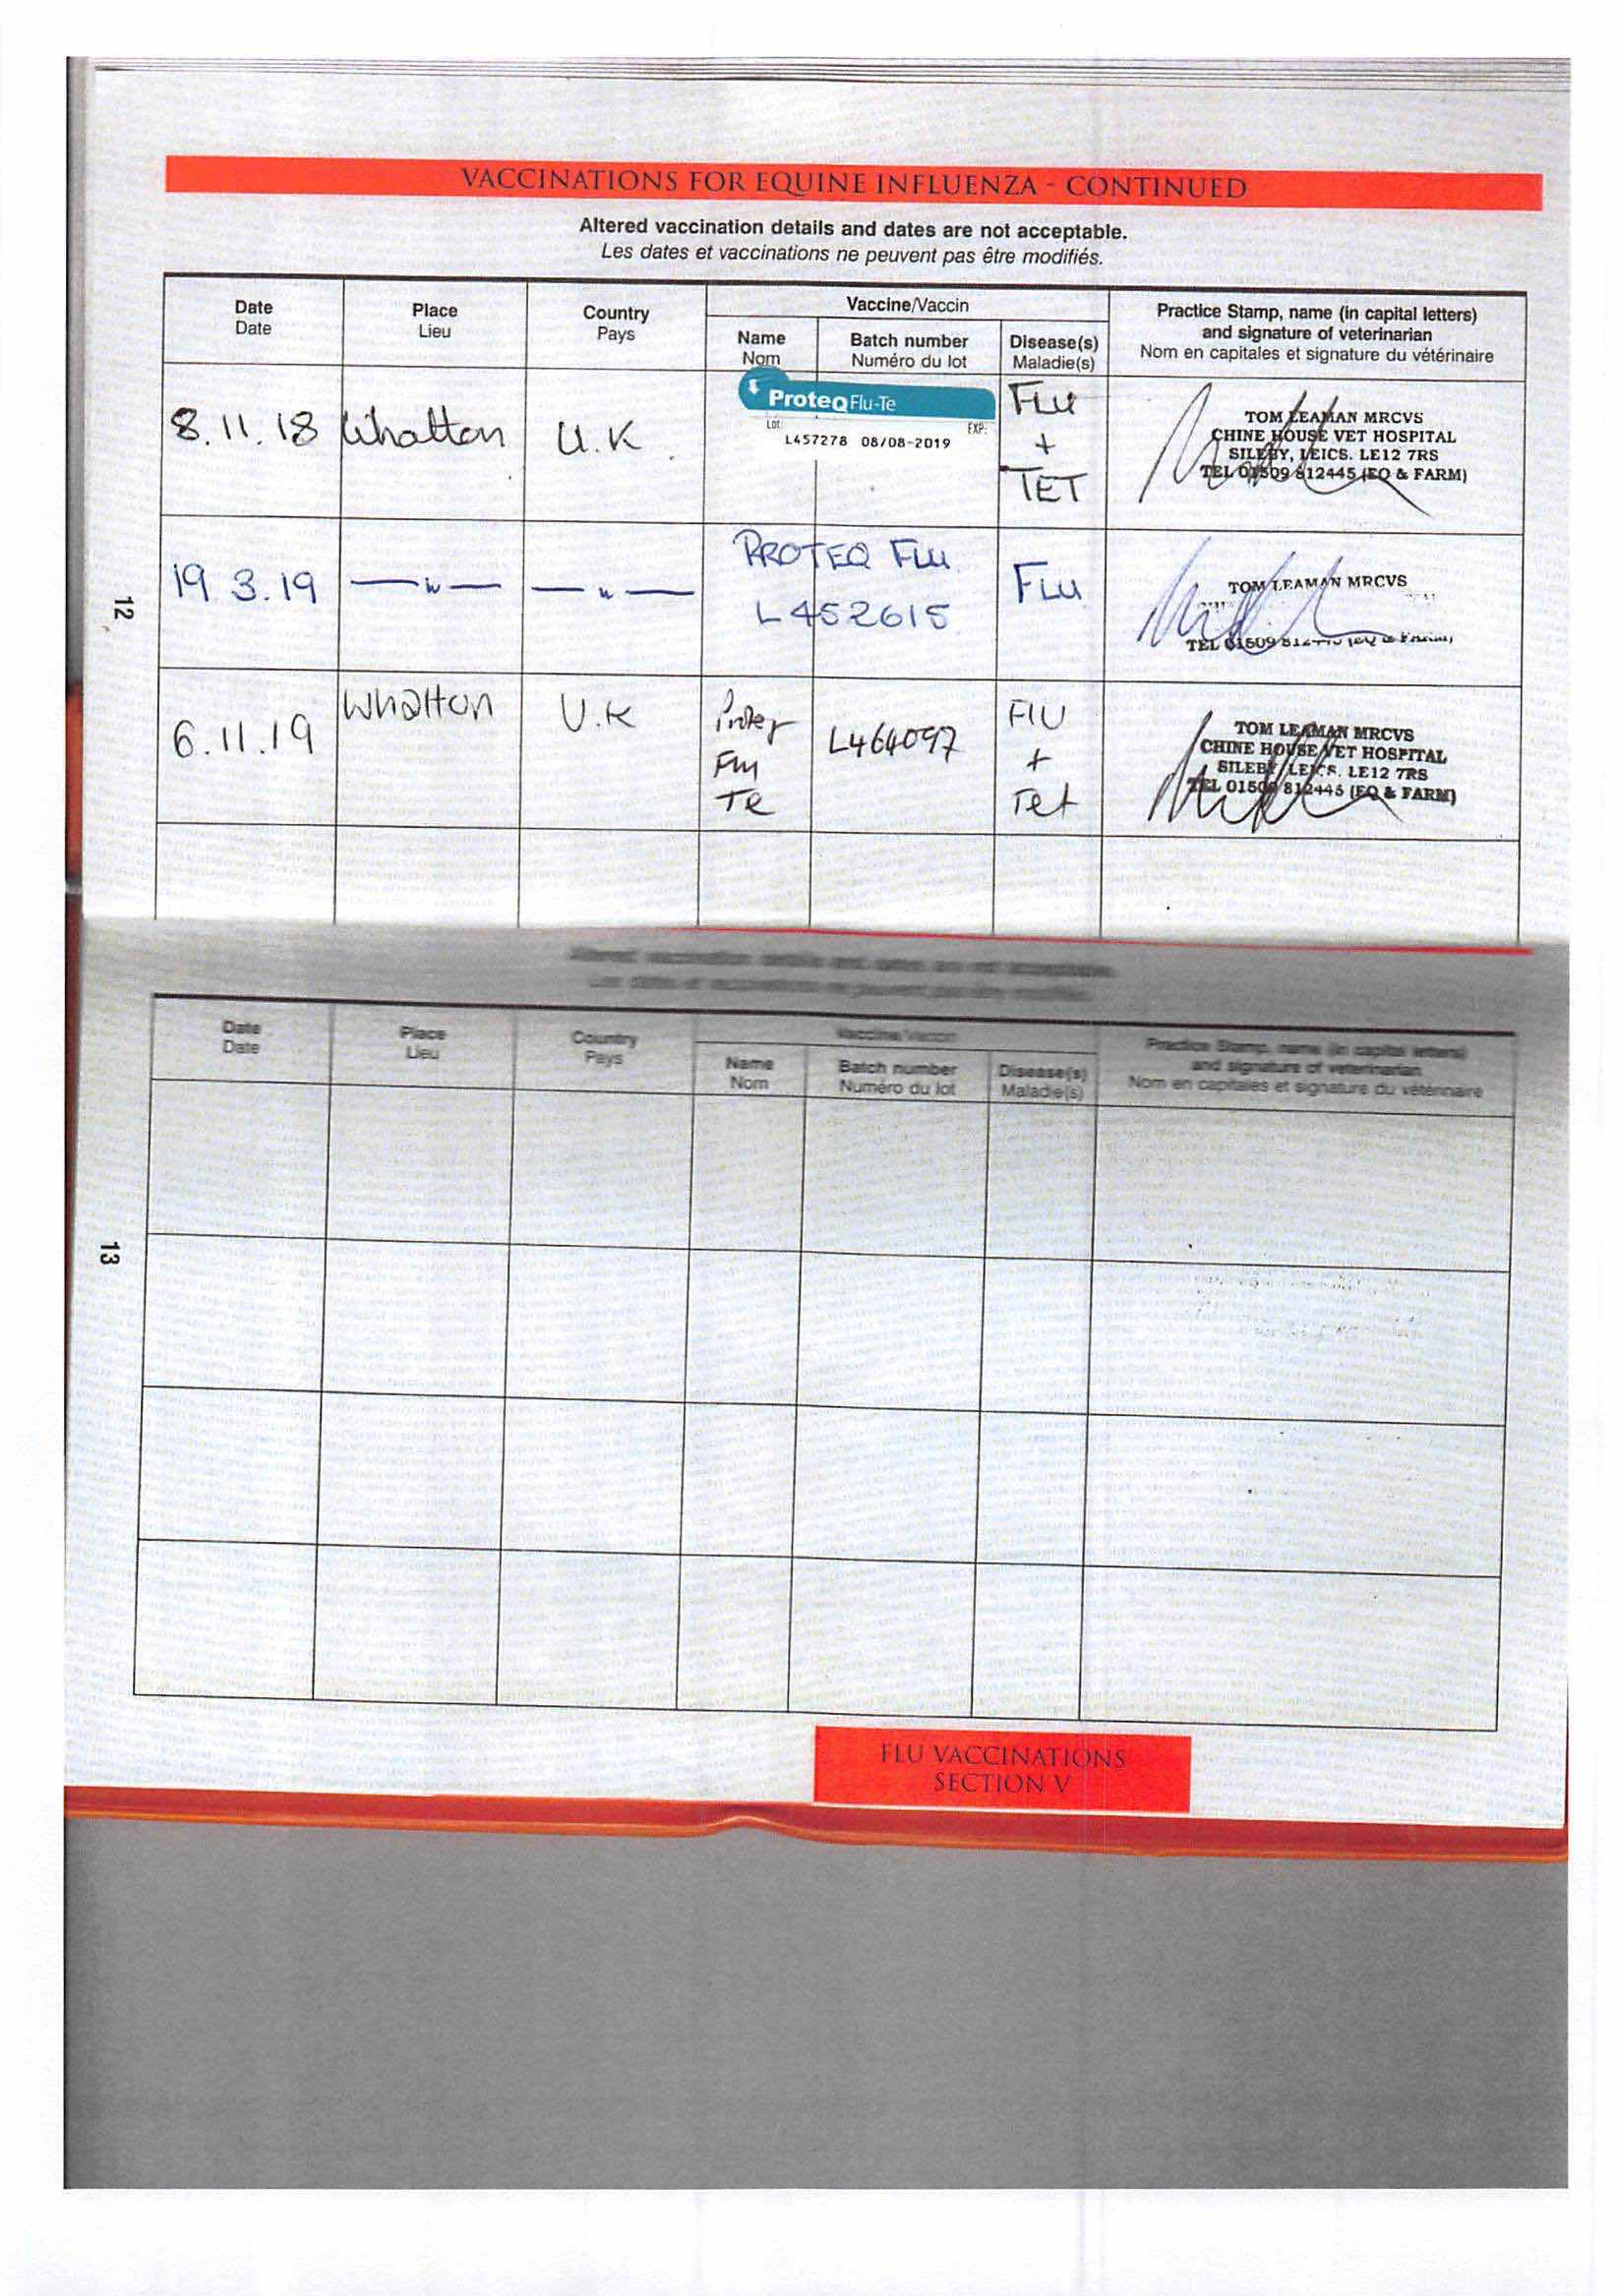 VACCINATIONS FOR EQUINE INFLUENZA - CONTINUED
Altered vaccination details and dates are not acceptable.
Les dates et vaccinations ne peuvent pas être modifiés.
Date
Date
Place
Lieu
Country
Pays
Vaccine/Vaccin
Name
Nom
Batch number
Numéro du lot
Disease(s)
Maladie(s)
Practice Stamp, name (in capital letters)
and signature of veterinarian
Nom en capitales et signature du vétérinaire
8.11.18
Whatton
U.K.
ProteqFlu-Te
Lot: EXP:
L457278 08/08-2019
Flu
+
TET
TOM LEAMAN MRCVS
CHINE HOUSE VET HOSPITAL
SILEBY, LEICS. LE12 7RS
TEL 01509 812445 (EQ & FARM)
19.3.19
PROTEQ FLU
L452615
FLU
TOM LEAMAN MRCVS
12
6.11.19
Whatton
U.K
Proteq
Flu
Te
L464097
Flu
+
Tet
TOM LEAMAN MRCVS
CHINE HOUSE VET HOSPITAL
SILEBY, LEICS. LE12 7RS
TEL 01509 812445 (EQ & FARM)
Altered vaccination details and dates are not acceptable.
Les dates et vaccinations ne peuvent pas être modifiés.
Date
Date
Place
Lieu
Country
Pays
Vaccine/Vaccin
Name
Nom
Batch number
Numéro du lot
Disease(s)
Maladie(s)
Practice Stamp, name (in capital letters)
and signature of veterinarian
Nom en capitales et signature du vétérinaire
13
FLU VACCINATIONS
SECTION V